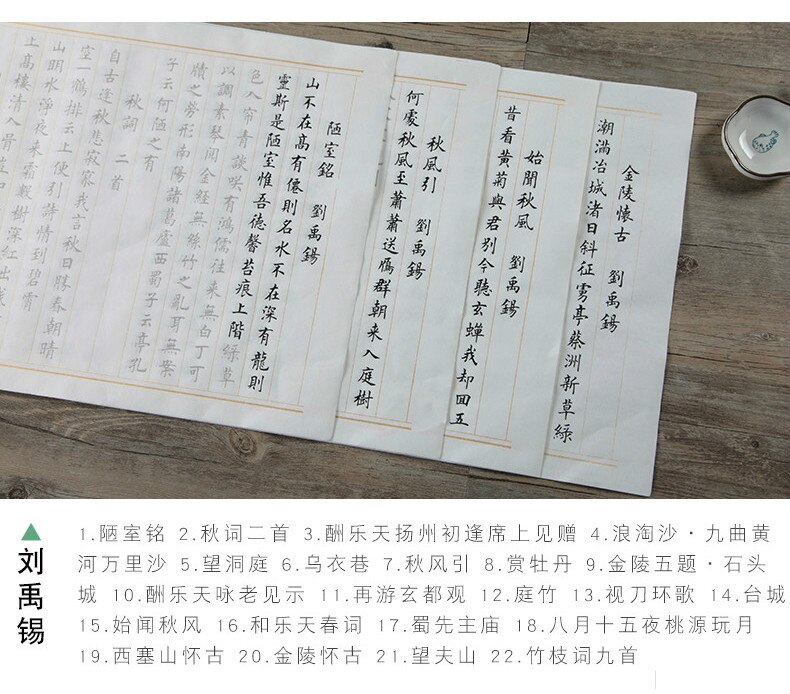 金陵懷古 劉禹錫
潮滿冶城渚日斜征虜亭蔡洲新草綠
始聞秋風 劉禹錫
昔看黃菊與君別今聽玄蟬我却回五
秋風引 劉禹錫
何處秋風至蕭蕭送鴈群朝来入庭樹
陋室銘 劉禹錫
山不在高有僊則名水不在深有龍則
靈斯是陋室惟吾德馨苔痕上階綠草
色入帘青談咲有鴻儒往来無白丁可
以調素琴閱金經無絲竹之亂耳無案
牘之勞形南陽諸葛廬西蜀子云亭孔
子云何陋之有
秋詞 二首
自古逢秋悲寂寥我言秋日勝春朝晴
空一鶴排云上便引詩情到碧霄
山明水淨夜来霜數樹深紅出淺
上高樓清入骨豈如
刘禹锡
1.陋室铭 2.秋词二首 3.酬乐天扬州初逢席上见赠 4.浪淘沙·九曲黄
河万里沙 5.望洞庭 6.乌衣巷 7.秋风引 8.赏牡丹 9.金陵五题·石头
城 10.酬乐天咏老见示 11.再游玄都观 12.庭竹 13.视刀环歌 14.台城
15.始闻秋风 16.和乐天春词 17.蜀先主庙 18.八月十五夜桃源玩月
19.西塞山怀古 20.金陵怀古 21.望夫山 22.竹枝词九首